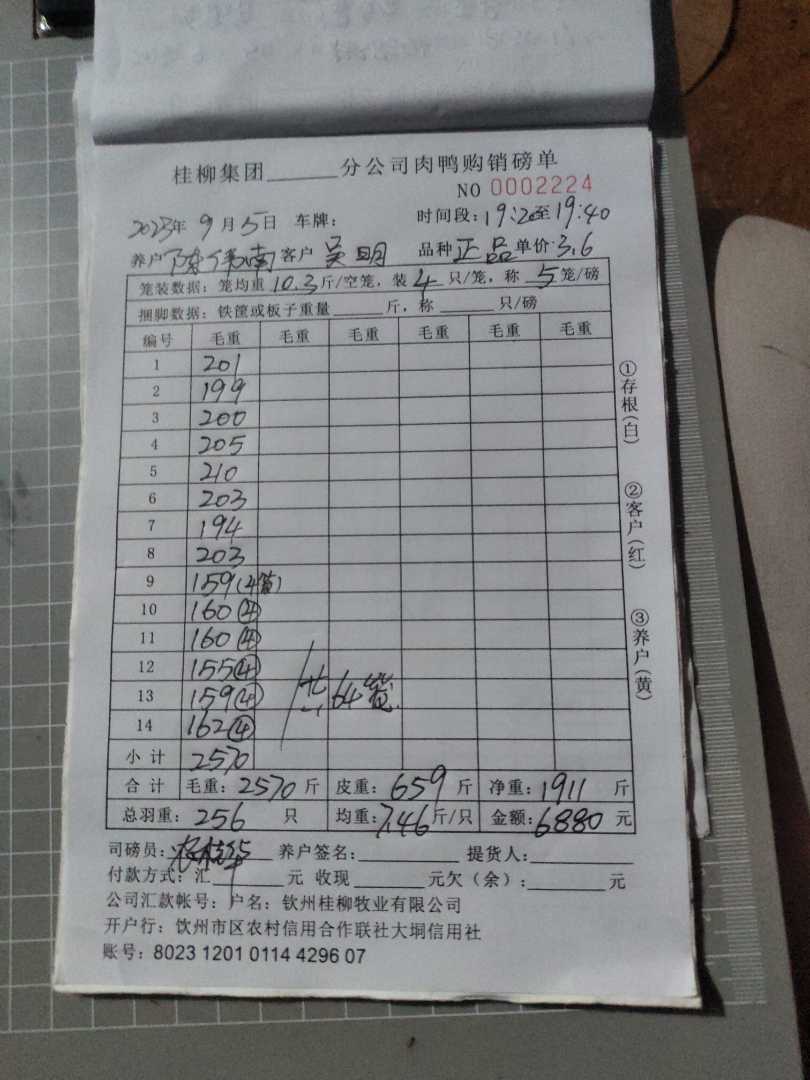 桂柳集团______分公司肉鸭购销磅单
NO 0002224
2023年 9月 5日 车牌: 时间段:19:20至19:40
养户 陈伟南 客户 吴明 品种 正品 单价:3.6
笼装数据: 笼均重 10.3 斤/空笼, 装 4 只/笼, 称 5 笼/磅
捆脚数据: 铁筐或板子重量______斤, 称______只/磅
编号 毛重 毛重 毛重 毛重 毛重 毛重
1 201
2 199
3 200
4 205
5 210
6 203
7 194
8 203
9 159(4笼)
10 160④
11 160④
12 155④
13 159④
14 162④
共64笼
小计 2570
合计 毛重: 2570 斤 皮重: 659 斤 净重: 1911 斤
总羽重: 256 只 均重: 7.46 斤/只 金额: 6880 元
司磅员: 养户签名:______ 提货人:______
付款方式: 汇______元 收现______元欠(余):______元
公司汇款帐号: 户名: 钦州桂柳牧业有限公司
开户行: 饮州市区农村信用合作联社大垌信用社
账号: 8023 1201 0114 4296 07
①存根(白)
②客户(红)
③养户(黄)